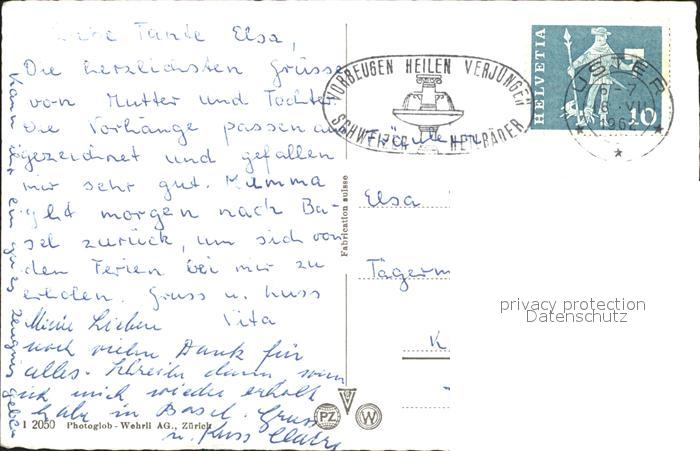 Liebe Tante Elsa,
Die herzlichsten Grüsse
von Mutter und Tochter
Die Vorhänge passen aus
gezeichnet und gefallen
mir sehr gut. Mamma
geht morgen nach Ba-
sel zurück, um sich von
den Ferien bei mir zu
erholen. Gruss u. Kuss
Vita
Kann dir ein gutes Zeugnis geben
Meine Lieben
noch vielen Dank für
alles. Schreibe dann wenn
ich mich wieder erholt
habe in Basel. Gruss
u. Kuss Claire
1 2050 Photoglob-Wehrli AG., Zürich
Fabrication suisse
PZ
W
VORBEUGEN HEILEN VERJÜNGEN
SCHWEIZER HEILBÄDER
HELVETIA
10
USTER
VII
1962
Fräulein
Elsa
Tägerm
K
privacy protection
Datenschutz